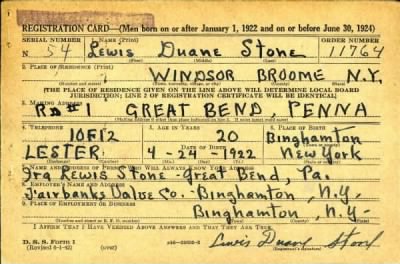 REGISTRATION CARD—(Men born on or after January 1, 1922 and on or before June 30, 1924)
SERIAL NUMBER 1. NAME (Print) ORDER NUMBER
N 54 Lewis Duane Stone 11764
(First) (Middle) (Last)
2. PLACE OF RESIDENCE (Print)
WINDSOR BROOME N.Y.
(Number and street) (Town, township, village, or city) (County) (State)
[THE PLACE OF RESIDENCE GIVEN ON THE LINE ABOVE WILL DETERMINE LOCAL BOARD
JURISDICTION; LINE 2 OF REGISTRATION CERTIFICATE WILL BE IDENTICAL]
3. MAILING ADDRESS
RD#1 GREAT BEND PENNA
[Mailing address if other than place indicated on line 2. If same insert word same]
4. TELEPHONE 5. AGE IN YEARS 6. PLACE OF BIRTH
10F12 20 Binghamton
DATE OF BIRTH
LESTER 4-24-1922 New York
(Exchange) (Number) (Mo.) (Day) (Yr.) (State or country)
7. NAME AND ADDRESS OF PERSON WHO WILL ALWAYS KNOW YOUR ADDRESS
Ira Lewis Stone - Great Bend, Pa.
8. EMPLOYER'S NAME AND ADDRESS
Fairbanks Valve Co. - Binghamton, N.Y.
9. PLACE OF EMPLOYMENT OR BUSINESS
Binghamton, N.Y.-
(Number and street or R. F. D. number) (Town) (County) (State)
I AFFIRM THAT I HAVE VERIFIED ABOVE ANSWERS AND THAT THEY ARE TRUE.
D. S. S. Form 1
(Revised 6-1-42) (over) Lewis Duane Stone